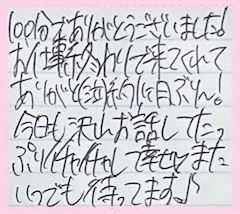 100分でありがとうございました!
お仕事終わりで来てくれて
ありがと
今日も沢山お話してたっ
ぷりイチャイチャして幸せ また
いつでも待ってます♪